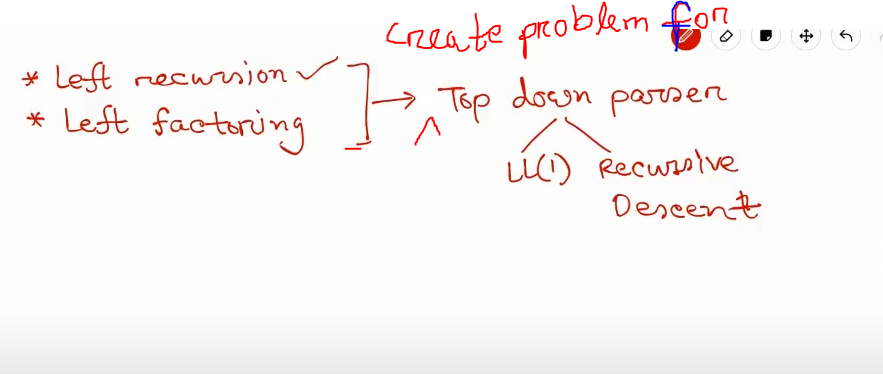 create problem for
* Left recursion ✓
* Left factoring
→ Top down parser
LL(1) Recursive
Descent